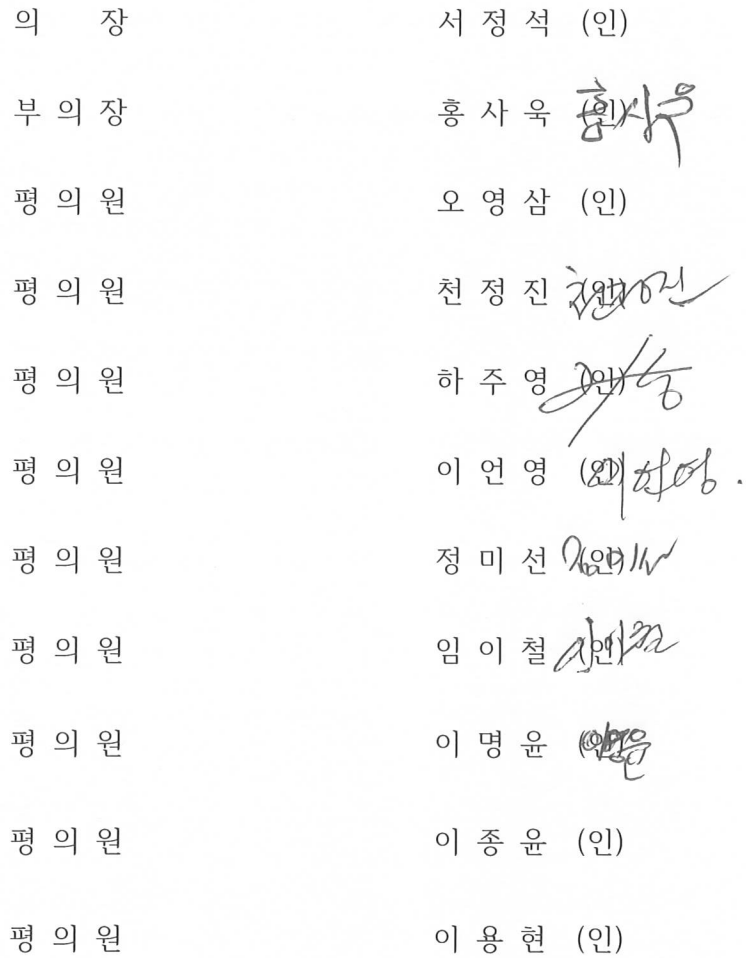 의 장 서 정 석 (인)
부 의 장 홍 사 욱 (인)
평 의 원 오 영 삼 (인)
평 의 원 천 정 진 (인)
평 의 원 하 주 영 (인)
평 의 원 이 언 영 (인)
평 의 원 정 미 선 (인)
평 의 원 임 이 철 (인)
평 의 원 이 명 윤 (인)
평 의 원 이 종 윤 (인)
평 의 원 이 용 현 (인)